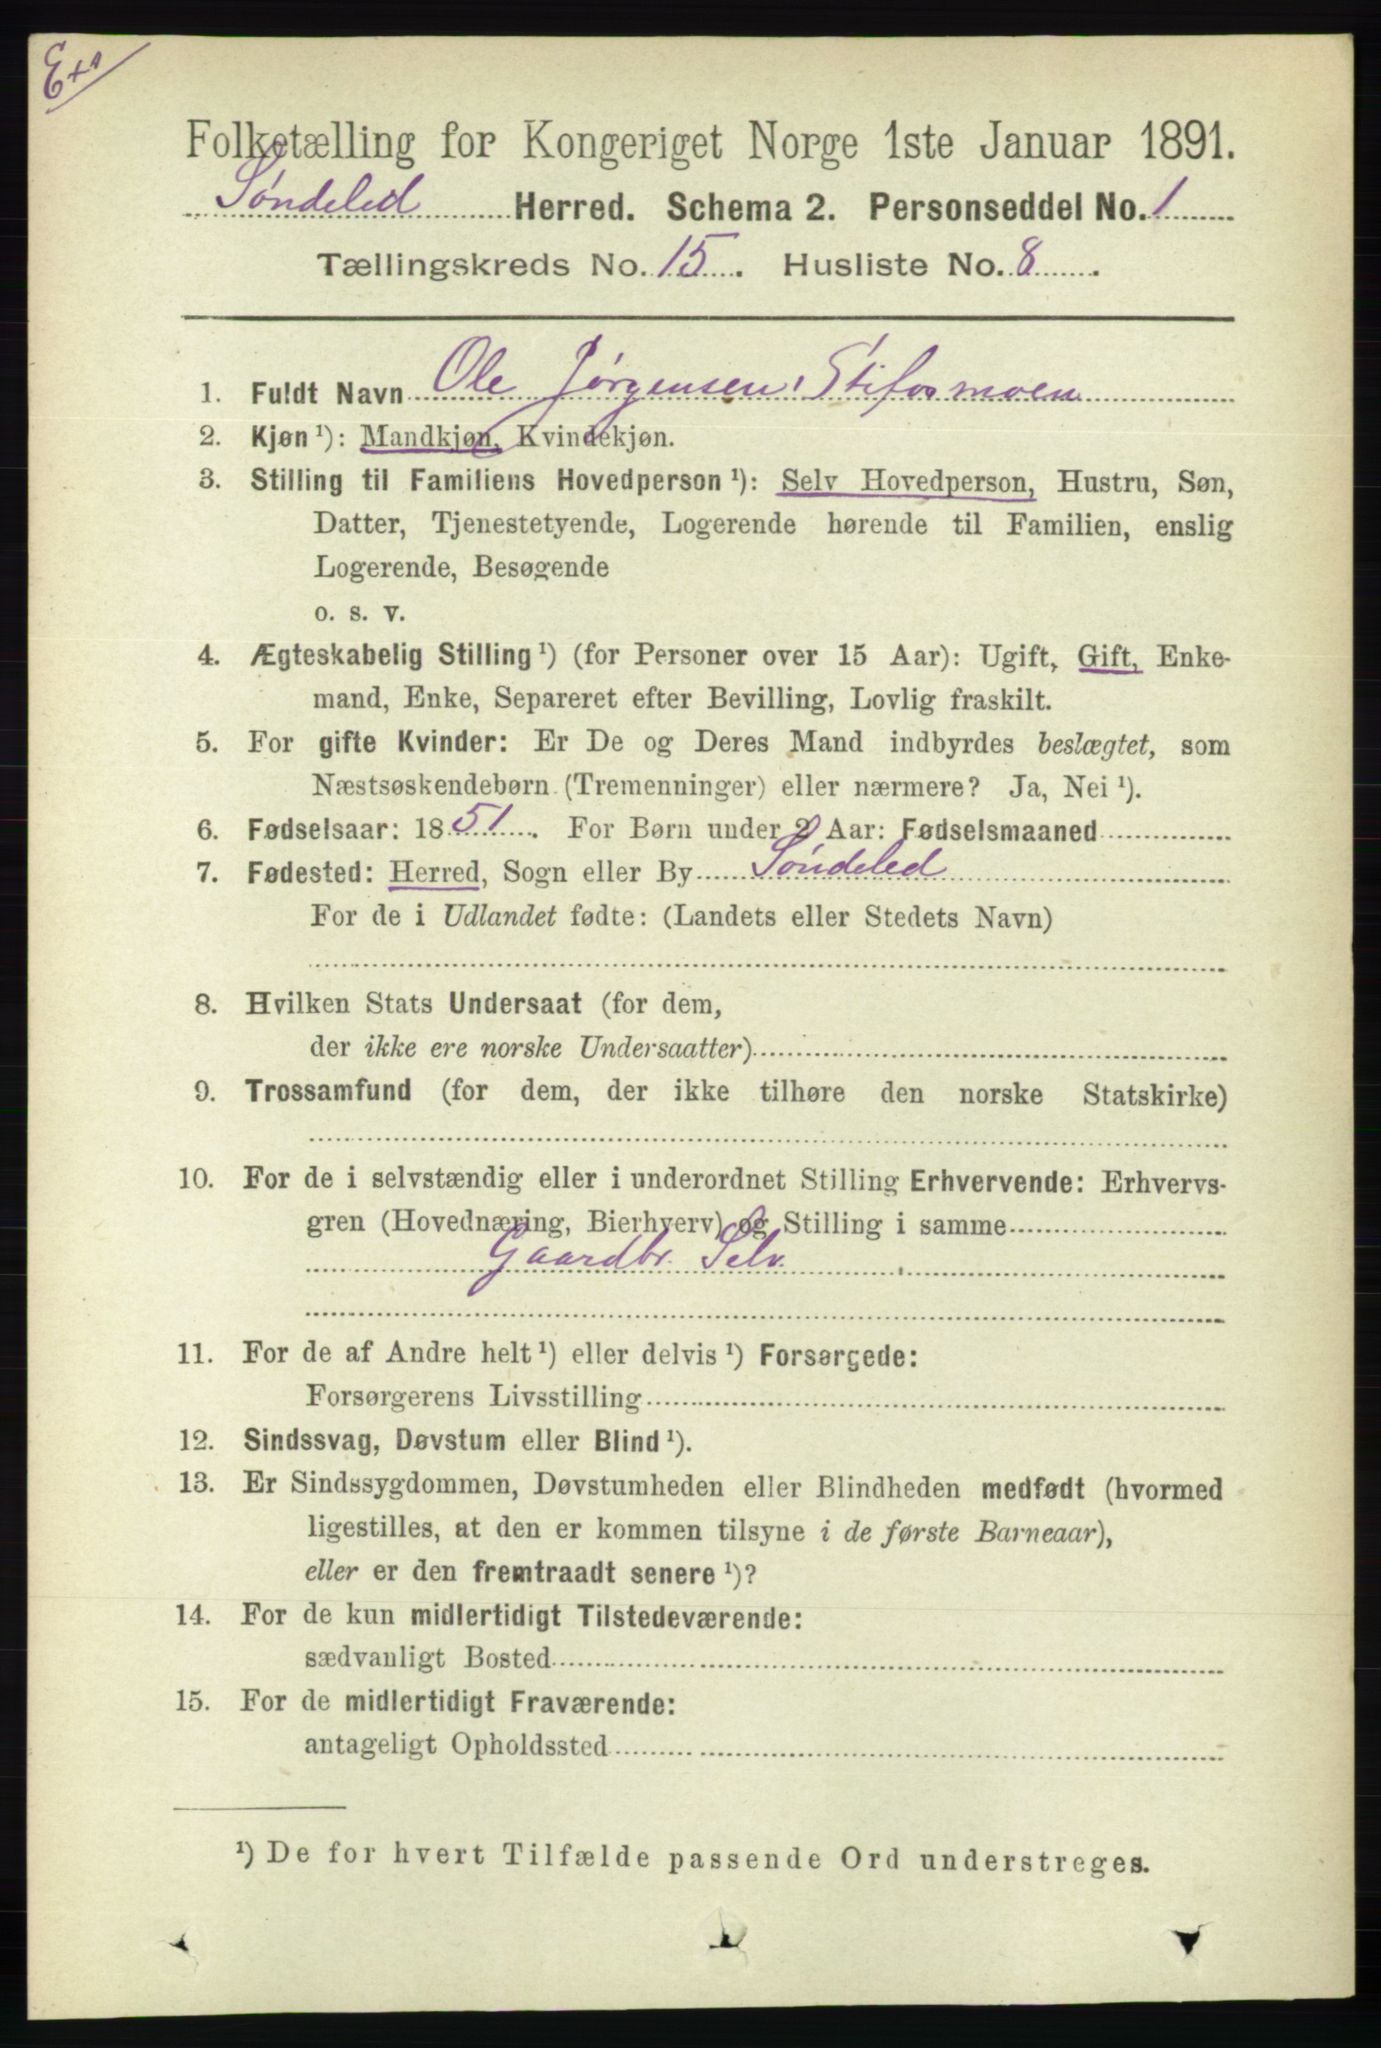 Ex1
Folketælling for Kongeriget Norge 1ste Januar 1891.
Søndeled Herred. Schema 2. Personseddel No. 1
Tællingskreds No. 15. Husliste No. 8.
1. Fuldt Navn Ole Jørgensen, Stifosmoen
2. Kjøn ¹): Mandkjøn, Kvindekjøn.
3. Stilling til Familiens Hovedperson ¹): Selv Hovedperson, Hustru, Søn,
Datter, Tjenestetyende, Logerende hørende til Familien, enslig
Logerende, Besøgende
o. s. v.
4. Ægteskabelig Stilling ¹) (for Personer over 15 Aar): Ugift, Gift, Enke-
mand, Enke, Separeret efter Bevilling, Lovlig fraskilt.
5. For gifte Kvinder: Er De og Deres Mand indbyrdes beslægtet, som
Næstsøskendebørn (Tremenninger) eller nærmere? Ja, Nei ¹).
6. Fødselsaar: 1851. For Børn under 2 Aar: Fødselsmaaned
7. Fødested: Herred, Sogn eller By Søndeled
For de i Udlandet fødte: (Landets eller Stedets Navn)
8. Hvilken Stats Undersaat (for dem,
der ikke ere norske Undersaatter)
9. Trossamfund (for dem, der ikke tilhøre den norske Statskirke)
10. For de i selvstændig eller i underordnet Stilling Erhvervende: Erhvervs-
gren (Hovednæring, Bierhverv) og Stilling i samme
Gaardbr. Selv.
11. For de af Andre helt ¹) eller delvis ¹) Forsørgede:
Forsørgerens Livsstilling
12. Sindssvag, Døvstum eller Blind ¹).
13. Er Sindssygdommen, Døvstumheden eller Blindheden medfødt (hvormed
ligestilles, at den er kommen tilsyne i de første Barneaar),
eller er den fremtraadt senere ¹)?
14. For de kun midlertidigt Tilstedeværende:
sædvanligt Bosted
15. For de midlertidigt Fraværende:
antageligt Opholdssted
¹) De for hvert Tilfælde passende Ord understreges.